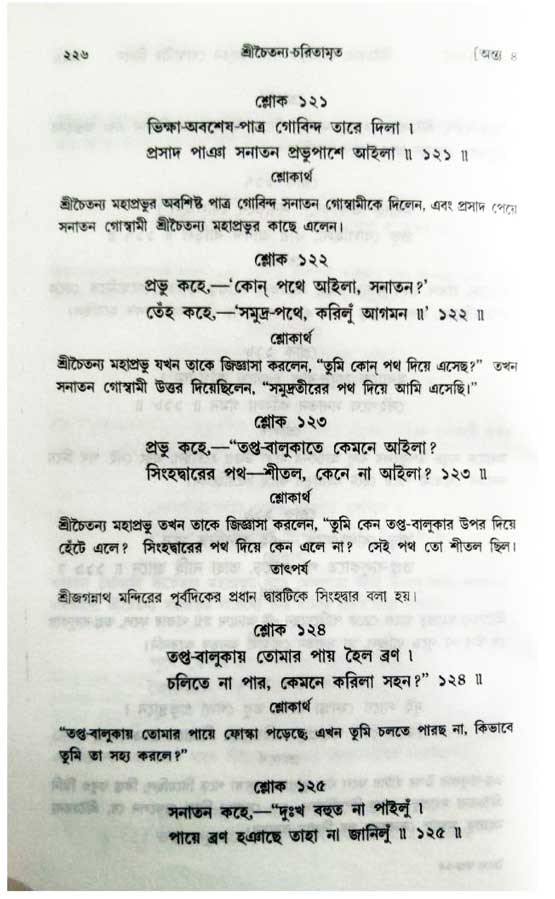 ২২৬ শ্রীচৈতন্য-চরিতামৃত [অন্ত্য ৪
শ্লোক ১২১
ভিক্ষা-অবশেষ-পাত্র গোবিন্দ তারে দিলা ।
প্রসাদ পাঞা সনাতন প্রভুপাশে আইলা ॥ ১২১ ॥
শ্লোকার্থ
শ্রীচৈতন্য মহাপ্রভুর অবশিষ্ট পাত্র গোবিন্দ সনাতন গোস্বামীকে দিলেন, এবং প্রসাদ পেয়ে
সনাতন গোস্বামী শ্রীচৈতন্য মহাপ্রভুর কাছে এলেন।
শ্লোক ১২২
প্রভু কহে,—‘কোন্ পথে আইলা, সনাতন?’
তেঁহ কহে,—‘সমুদ্র-পথে, করিলুঁ আগমন ॥’ ১২২ ॥
শ্লোকার্থ
শ্রীচৈতন্য মহাপ্রভু যখন তাকে জিজ্ঞাসা করলেন, “তুমি কোন্ পথ দিয়ে এসেছ?” তখন
সনাতন গোস্বামী উত্তর দিয়েছিলেন, “সমুদ্রতীরের পথ দিয়ে আমি এসেছি।”
শ্লোক ১২৩
প্রভু কহে,—“তপ্ত-বালুকাতে কেমনে আইলা?
সিংহদ্বারের পথ—শীতল, কেনে না আইলা? ১২৩ ॥
শ্লোকার্থ
শ্রীচৈতন্য মহাপ্রভু তখন তাকে জিজ্ঞাসা করলেন, “তুমি কেন তপ্ত-বালুকার উপর দিয়ে
হেঁটে এলে? সিংহদ্বারের পথ দিয়ে কেন এলে না? সেই পথ তো শীতল ছিল।
তাৎপর্য
শ্রীজগন্নাথ মন্দিরের পূর্বদিকের প্রধান দ্বারটিকে সিংহদ্বার বলা হয়।
শ্লোক ১২৪
তপ্ত-বালুকায় তোমার পায় হৈল ব্রণ ।
চলিতে না পার, কেমনে করিলা সহন?” ১২৪ ॥
শ্লোকার্থ
“তপ্ত-বালুকায় তোমার পায়ে ফোস্কা পড়েছে, এখন তুমি চলতে পারছ না, কিভাবে
তুমি তা সহ্য করলে?”
শ্লোক ১২৫
সনাতন কহে,—“দুঃখ বহুত না পাইলুঁ ।
পায়ে ব্রণ হঞাছে তাহা না জানিলুঁ ॥ ১২৫ ॥